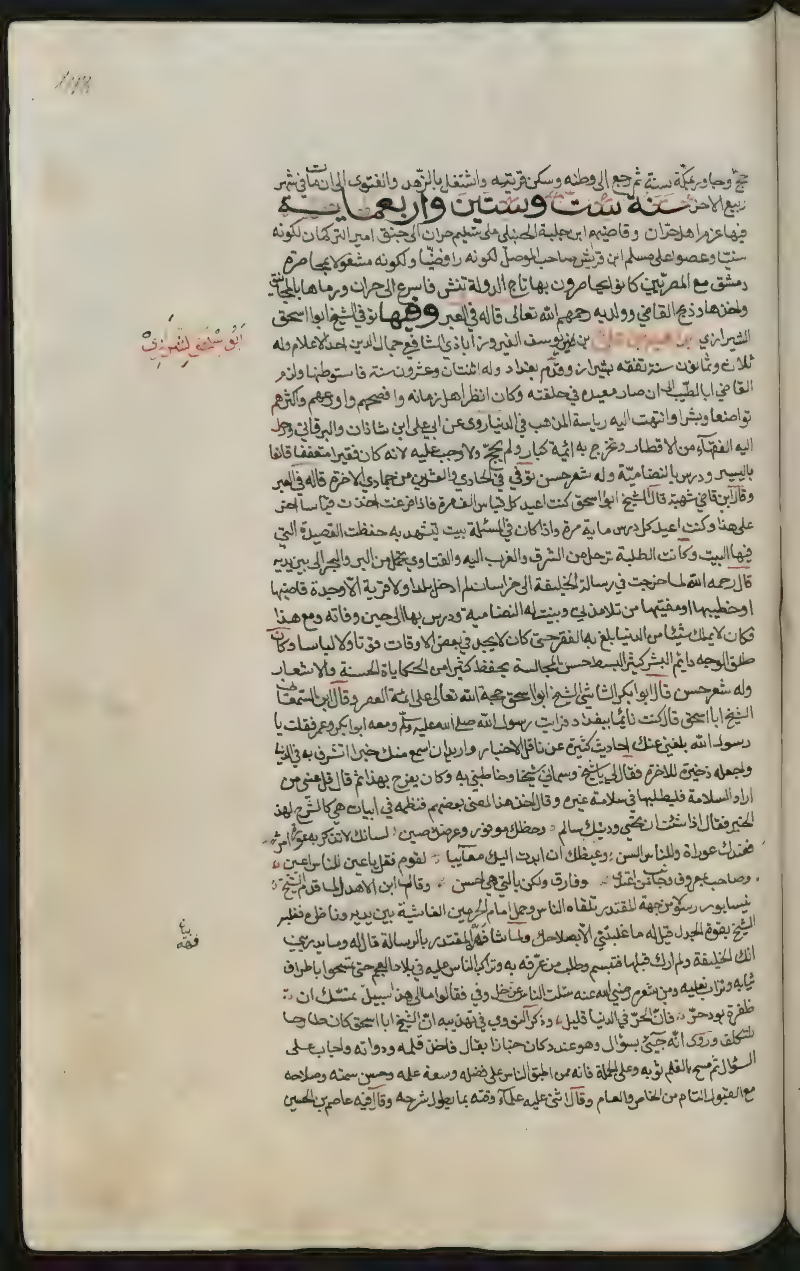 حج وجاور بمكة سنة ثم رجع إلى وطنه وسكن قريته واشتغل بالزهد والفتوى الى ان مات في شهر
ربيع الاخر سنة ست وستين واربعماية
فيها عزم اهل حران وقاضيهم ابن جلبة الحنبلي على تسليم حران الى جنق امير التركمان لكونه
سنيا وعصوا على مسلم ابن قريش صاحب الموصل لكونه رافضيا ولكونه مشغولا بمحاصرة
دمشق مع المصريين كانوا يحاصرون بها تاج الدولة تتش فاسرع الى حران ورماها بالمجانيق
واخذها وذبح القاضي وولديه رحمهم الله تعالى قاله في العبر وفيها توفي الشيخ ابو اسحق
الشيرازي ابراهيم بن علي بن يوسف الفيروزاباذي الشافعي جمال الدين احد الاعلام وله
ثلاث وثمانون سنة تفقه بشيراز وقدم بغداد وله اثنتان وعشرون سنة فاستوطنها ولزم
القاضي ابا الطيب الى ان صار معيده في حلقته وكان انظر اهل زمانه وافصحهم واورعهم واكثرهم
تواضعا وبشرا وانتهت اليه رياسة المذهب في الدنيا روى عن ابي على ابن شاذان والبرقاني ورحل
اليه الفقهاء من الاقطار وتخرج به ائمة كبار ولم يحج ولا وجب عليه لانه كان فقيرا متعففا قانعا
باليسير ودرس بالنضامية وله شعر حسن توفي في الحادي والعشرين من جمادي الاخرة قاله في العبر
وقال ابن قاضي شهبة قال الشيخ ابو اسحق كنت اعيد كل قياس الف مرة فاذا فرغت اخذت قياسا اخر
على هذا وكنت اعيد كل درس ماية مرة واذا كان في المسئلة بيت يستشهد به حفظت القصيدة التي
فيها البيت وكانت الطلبة ترحل من الشرق والغرب اليه والفتاوي تحمل من البر والبحر الى بين يديه
قال رحمه الله لما خرجت في رسالة الخليفة الى خراسان لم ادخل بلدا ولا قرية الا وجدة قاضيها
او خطيبها او مفتيها من تلامذتي وبنيت له النضامية ودرس بها الى حين وفاته ومع هذا
فكان لا يملك شيئا من الدنيا بلغ به الفقر حتى كان لا يجد في بعض الاوقات قوتا ولا لباسا وكان
طلق الوجه دايم البشر كثير البسط حسن المجالسة يحفظ كثيرا من الحكاياة الحسنة والاشعار
وله شعر حسن قال ابو بكر الشاشي الشيخ ابو اسحق حجة الله تعالى على ائمة العصر وقال ابن السمعاني
الشيخ ابا اسحق قال كنت نايما ببغداد فرايت رسول الله صلى الله عليه وسلم ومعه ابو بكر وعمر فقلت يا
رسول الله بلغني عنك احاديث كثيرة عن ناقل الاخبار واريد ان اسمع منك خبرا اتشرف به في الدنيا
واجعله ذخيرة للاخرة فقال لي يا شيخ وسماني شيخا وخاطبني به وكان يفرح بهذا ثم قال قل عني من
اراد السلامة فليطلبها في سلامة غيره وقال اخذ هذا المعنى بعضهم فنظمه في ابيات هي كالشرح لهذا
الخبر فقال اذا شئت ان تحيى ودينك سالم وحظك موفور وعرضك صين لسانك لا تذكر به عورة امرئ
فعندك عوراة وللناس السن وعينك ان ابدت اليك معايبا لقوم فقل يا عين للناس اعين
وصاحب بمعروف وجانب من اعتدى وفارق ولكن بالتي هي احسن وقال ابن الاهدل لما قدم الشيخ
نيسابور رسولا من جهة المقتدر تلقاه الناس وحمل امام الحرمين الغاشية بين يديه وناظره فغلبه
الشيخ بقوة الجدل قيل له ما غلبتني الا بصلاحك ولما شافه المقتدر بالرسالة قال له وما يدريني
انك الخليفة ولم ارك قبلها فتبسم وطلب من عرفه به وتراكب الناس عليه في بلاد العجم حتى تمسحوا باطراف
ثيابه وتراب نعليه ومن شعره رضي الله عنه سئلت الناس عن خل وفي فقالوا ما الى هذا سبيل تمسك ان
ظفرة بود حر فان الحر في الدنيا قليل وذكر النووي في تهذيبه ان الشيخ ابا اسحق كان طارحا
للتكلف وروى انه جئ بسؤال وهو عند دكان خباز او بقال فاخذ قلمه ودواته واجاب على
السؤال ثم مسح القلم بثوبه وعلى الجملة فانه ممن اطبق الناس على فضله وسعة علمه وحسن سمته وصلاحه
مع القبول التام من الخاص والعام وقال اثنى عليه علماء وقته بما يطول شرحه وقال فيه عاصم بن الحسين
ابو اسحق الشيرازي